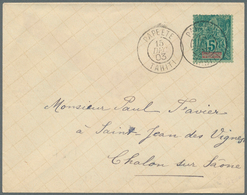 PAPEETE
15
DEC
03
TAHITI
15
Monsieur Paul Tavier
à Saint Jean des Vignes
Chalon sur Saône